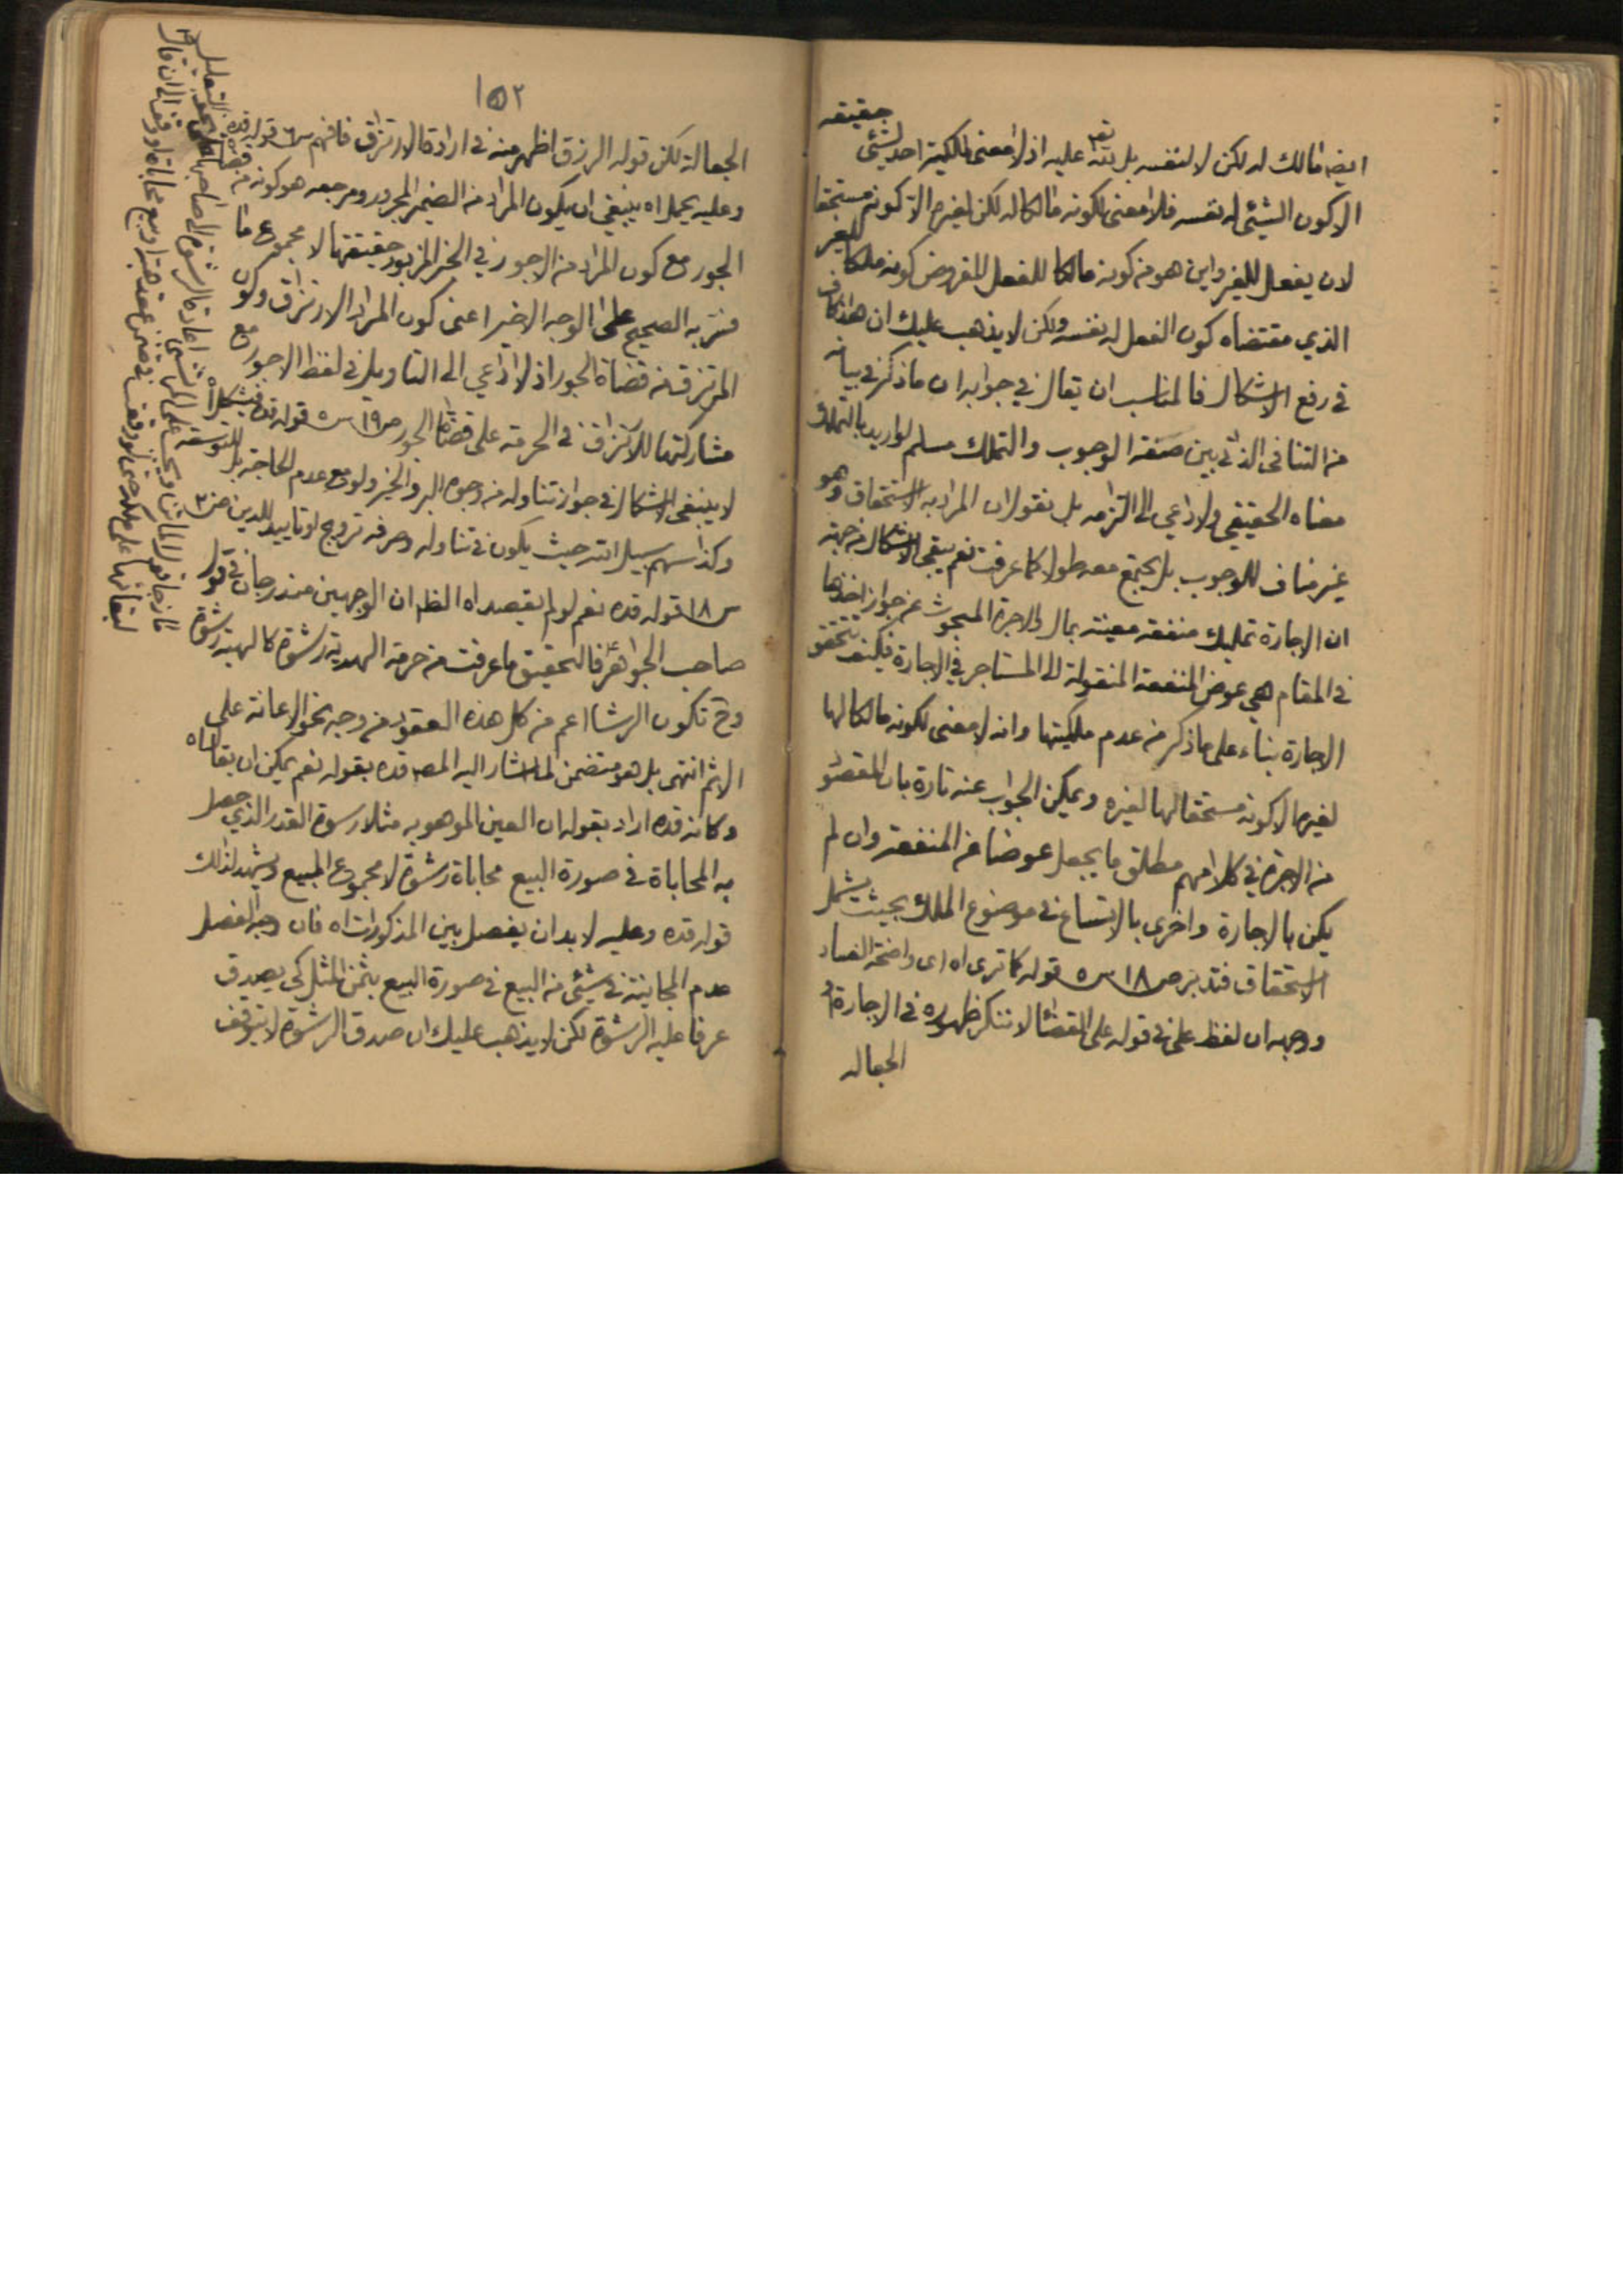 ايضا مالك له لكن لا لنفسه بل لله تعه عليه اذ لا معنى لملكية احد لشئ حقيقه
الا كون الشئ له نفسه فلا معنى لكونه مالكا له لكن لغيره الا كونه مستحقا
لان يفعل للغير واين هو من كونه مالكا للفعل المفروض كونه ملكا للغير
الذي مقتضاه كون الفعل له نفسه ولكن لا يذهب عليك ان هذا كاف
في رفع الاشكال فالمناسب ان يقال في جوابه ان ما ذكر في بيانه
من التنافى الذاتي بين صفة الوجوب والتملك مسلم لو اريد بالتملك
معناه الحقيقي ولا داعي الى التزامه بل نقول ان المراد به الاستحقاق وهو
غير مناف للوجوب بل يجتمع معه طولا كما عرفت نعم يبقى الاشكال من جهة
ان الاجارة تمليك منفعة معينة بمال والاجرة المبحوث عن جواز اخذها
في المقام هي عوض المنفعة المنقولة الى المستاجر في الاجارة فكيف تتحقق
الاجارة بناء على ما ذكر من عدم ملكيتها وانه لا معنى لكونه مالكا لها
لغيره الا كونه مستحقا لها لغيره ويمكن الجواب عنه تارة بان المقصود
من الاجرة في كلامهم مطلق ما يجعل عوضا عن المنفعة وان لم
يكن بالاجارة واخرى بالاتساع في موضوع الملك بحيث يشمل
الاستحقاق فتدبر ص ١٨ س ٥ قوله كما ترى اه اى واضحة الفساد
ووجهه ان لفظ على في قوله على القضاء لا ننكر ظهوره في الاجارة او
الجعاله
١٥٢
الجعالة لكن قوله الرزق اظهر منه في ارادة الارتزاق فافهم س ٦ قوله قده
وعليه يحمل اه ينبغي ان يكون المراد من الضمير المجرور ومرجعه هو كونه من قضاة
الجور مع كون المراد من الاجور في الخبر المزبور حقيقتها لا مجموع ما
فسر به الصحيح على الوجه الاخير اعنى كون المراد الارتزاق وكون
المرتزق من قضاة الجور اذ لا داعي الى التاويل في لفظ الاجور مع
مشاركتها للارتزاق في الحرمة على قضاة الجور ص ١٩ س ٥ قوله قده فيشكل اه
لا ينبغى الاشكال في جواز تناوله من وجوه البر والخير ولو مع عدم الحاجة بل للتوسعة
وكذا سهم سبيل الله حيث يكون في تناوله وصرفه ترويج او تاييد للدين ص ٢٠
س ١٨ قوله قده نعم لو لم يقصد اه الظ ان الوجهين مندرجان في قول
صاحب الجواهر فالتحقيق ما عرفت من حرمة الهدية رشوة كالهبة رشوة
وح تكون الرشا اعم من كل هذه العقود من وجه نحو الاعانة على
الاثم انتهى بل هو متضمن لما اشار اليه المصه قده بقوله نعم يمكن ان يقال اه
وكانه قده اراد بقوله ان العين الموهوبه مثلا رسوة القدر الذي حصل
به المحاباة في صورة البيع محاباة رشوة لا مجموع المبيع ويشهد لذلك
قوله قده وعليه لا بد ان يفصل بين المذكورات اه فان وجه الفصل
عدم المجانية في شئ من البيع في صورة البيع بثمن المثل كى يصدق
عرفا عليه الرشوة لكن لا يذهب عليك ان صدق الرشوة لا يتوقف